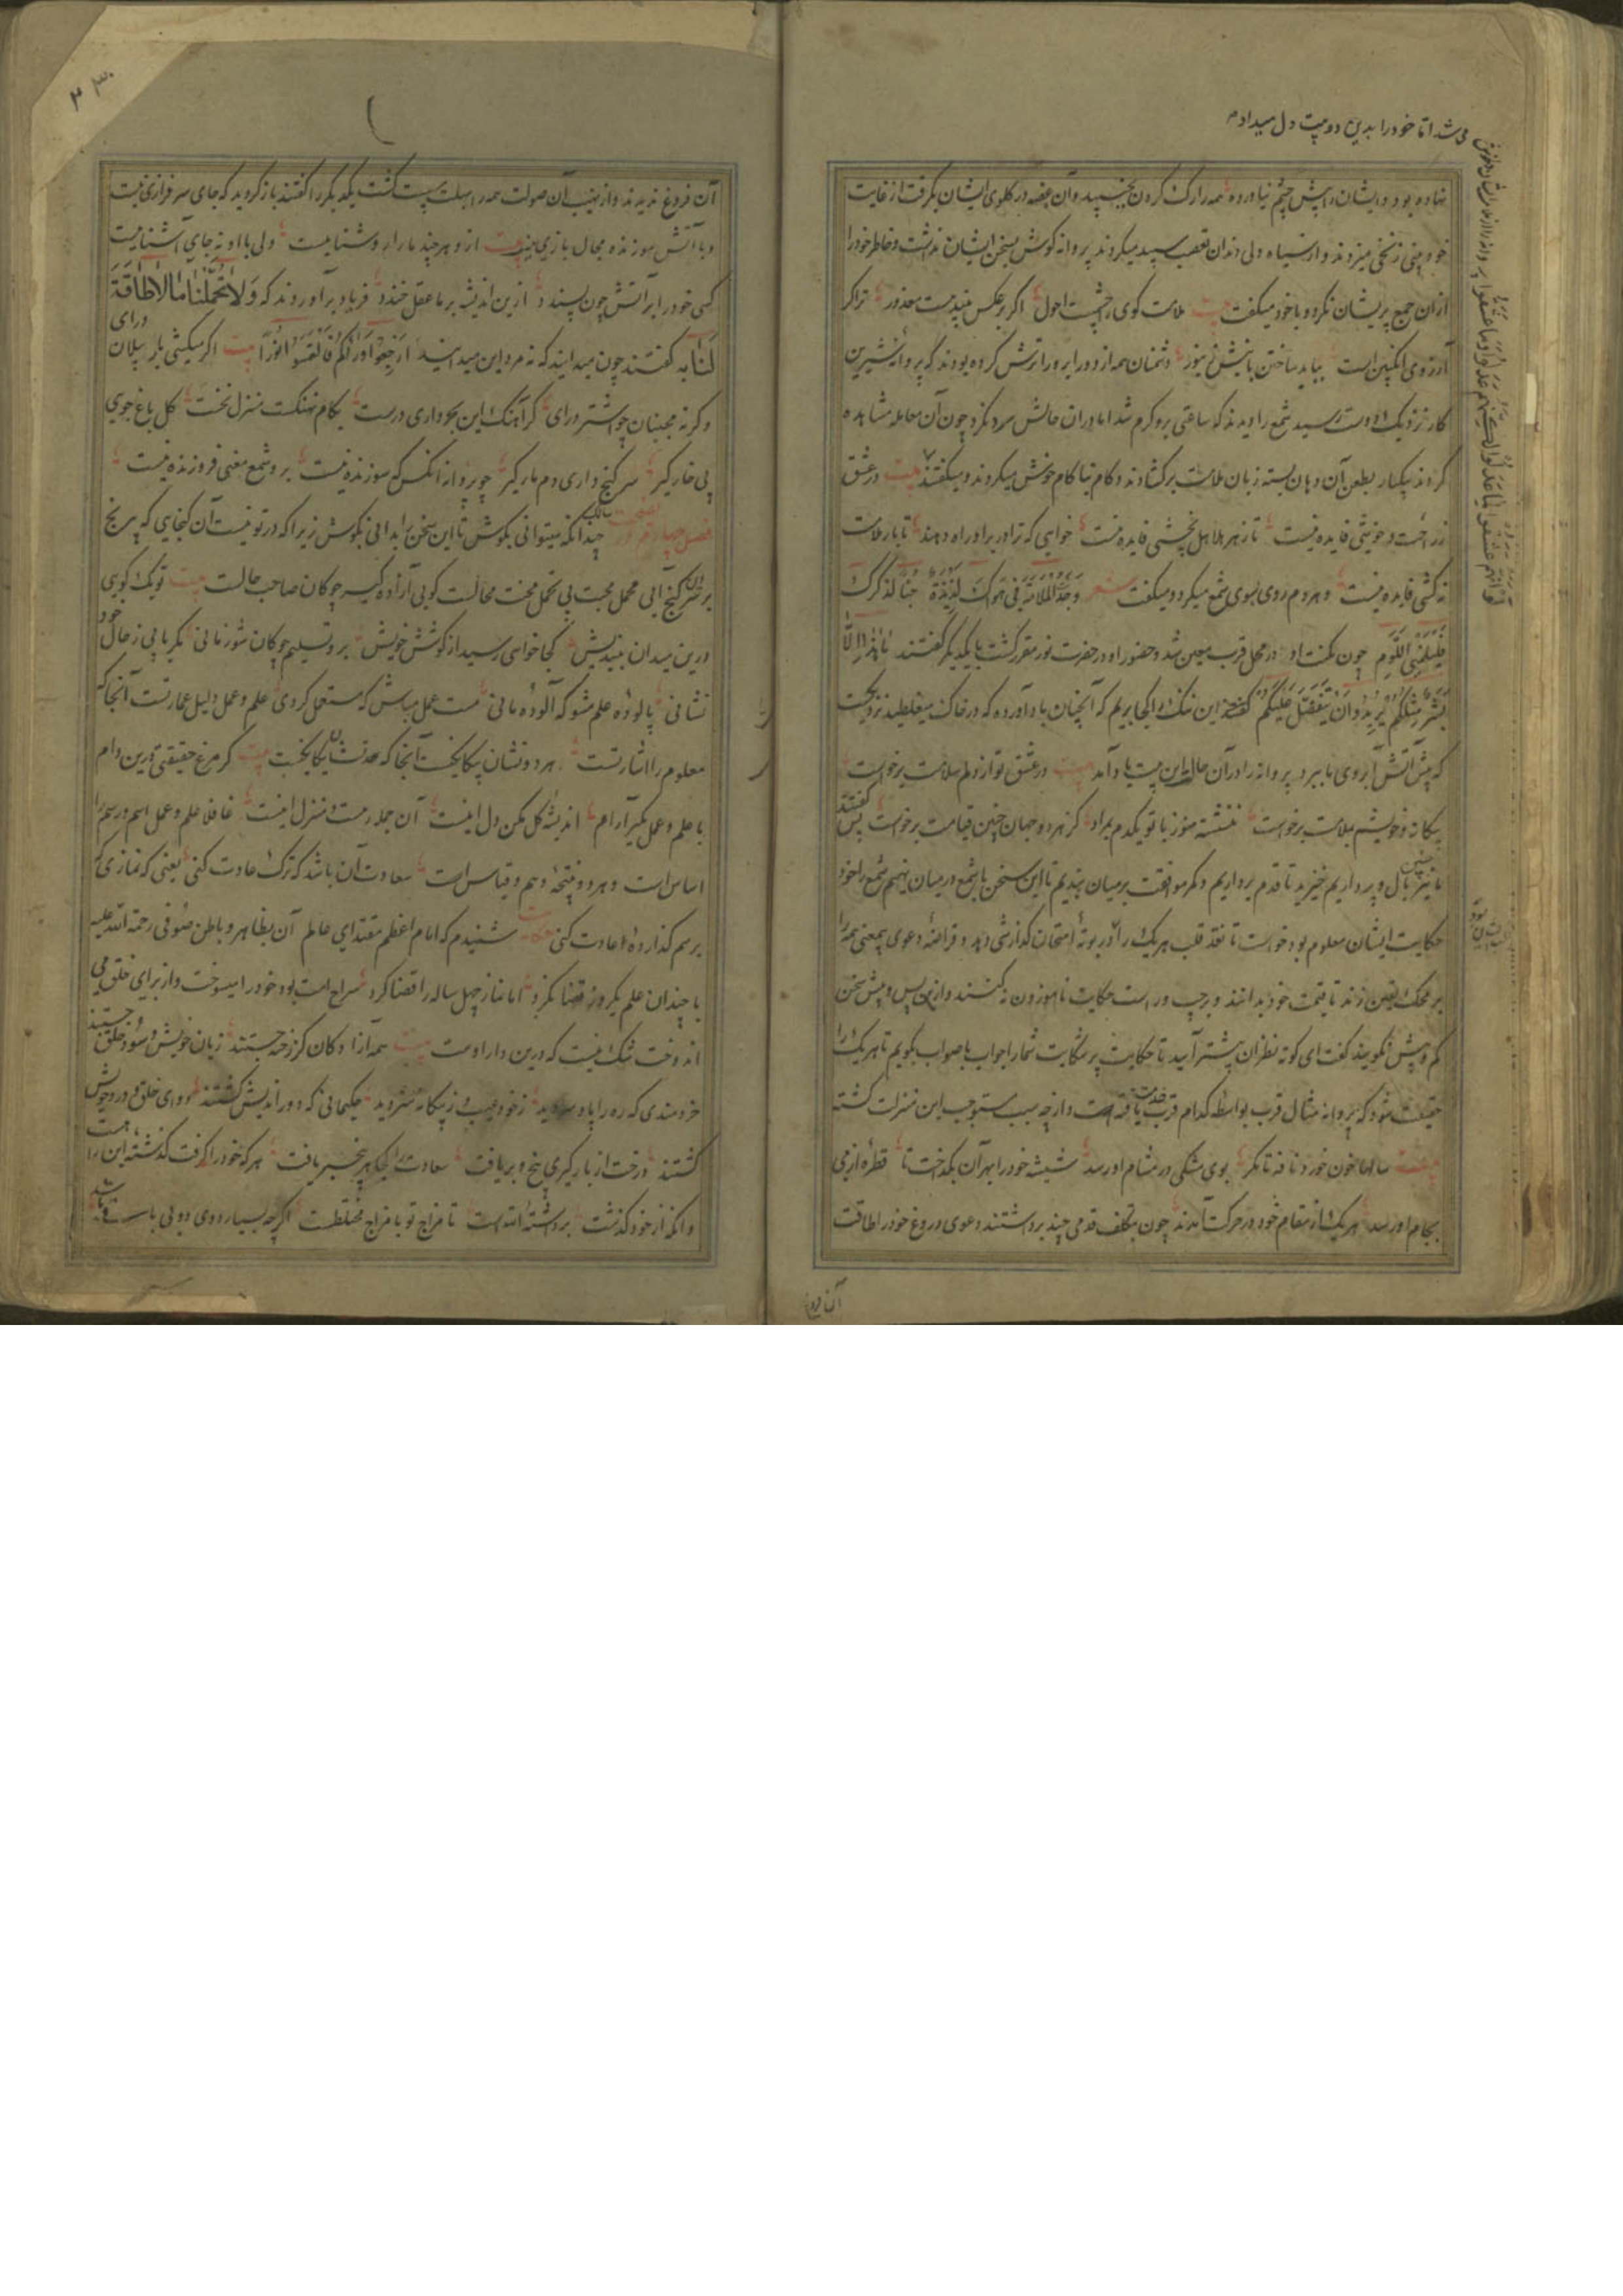 می شد اما خود را بدین دو بیت دل میداد
نهاده بود و ایشان را پیش چشم نیاورده همه را رک کردن بجنبید و آن غصه در گلوی ایشان بگرفت از غایت
خود بینی زنخی میزدند و از سیاه دلی دندان تعصب سپید میکردند پروانه گوش بسخن ایشان نداشت و خاطر خود را
از آن جمع پریشان نکرد و با خود میگفت بیت ملامت گوی را چشمست احول اگر بر عکس بیند هست معذور ترا گر
آرزوی انگبین است بباید ساختن با نیش زنبور دشمنان همه از دور ابرو را ترش کرده بودند که پروانه شیرین
کار نزدیک دوست رسید شمع را دیدند که ساعتی برو گرم شد اما در آن حالش سرد نکرد چون آن معامله مشاهده
کردند بیکبار بطعن آن دهان بسته زبان ملامت برگشادند و کام ناکام خوش میکردند و میگفتند بیت در عشق
زراحت و خوشی فایده نیست تا زهر هلاهل نچشی فایده نیست خواهی که ترا در بر او راه دهند تا بار ملامت
نه کشی فایده نیست و هر دم روی بسوی شمع میکرد و میگفت شعر وَجَدُ الْمَلَامَةَ فِی هَوَاكَ لَذِیذَةً حُبّاً لِذِکْرِكَ
فَلْیَلُمْنِی اللُّوَّمُ چون مکنت او در محل قرب معین شد و حضور او در حضرت نور مقرر گشت با یکدیگر گفتند مَا هَذَا إِلَّا
بَشَرٌ مِثْلُکُمْ یُرِیدُ أَنْ یَتَفَضَّلَ عَلَیْکُمْ گفتند این ننگ را کجا بریم که آنچنان باد آورده که در خاک میغلطید نزدیکست
که پیش آتش آبروی ما ببرد پروانه را در آن حالت این بیت یاد آمد بیت در عشق تو از دلم سلامت برخواست
بیگانه و خویشم بملامت برخواست ننشسته هنوز با تو یکدم بمراد کز هر دو جهان چنین قیامت برخواست پس گفتند
ما نیز بال و پر داریم خیزید تا قدم برداریم و کمر موافقت بر میان بندیم تا این سخن با شمع در میان نهیم شمع را خود
حکایت ایشان معلوم بود خواست تا نقد قلب هر یک را در بوته امتحان گدازشی دهد و قراضه دعوی بیمعنی همه را
بر محک یقین زند تا قیمت خود بدانند و بر چپ و راست حکایت ناموزون نه کنند و ازین پس و پیش سخن
کم و بیش نگویند گفت ای کوته نظران پیشتر آیید تا حکایت پر شکایت شما را جواب با صواب بگویم تا هر یک را
حقیقت شود که پروانه مثال قرب بواسطه کدام قرب خدمت یافته است و از چه سبب مستوجب این منزلت گشته
بیت سالها خون خورد نافه تا مگر بوی مشکی در مشام او رسد شیشه خود را بهر آن بگداخت تا قطره از می
بجام او رسد هر یک از مقام خود در حرکت آمدند چون بتکلف قدمی چند برداشتند دعوی دروغ خود را طاقت
۲۳۰
آن فروغ ندیدند و از نهیب آن صولت همه را سبلت پست گشت یکدیگر را گفتند باز گردید که جای سرفرازی نیست
و با آتش سوزنده مجال بازی نیست بیت از و هر چند ما را روشناییست ولی با او نه جای آشناییست
کسی خود را بر آتش چون پسندد ازین اندیشه بر ما عقل خندد فریاد برآوردند که وَلَا تُحَمِّلْنَا مَا لَا طَاقَةَ
لَنَا بِهِ گفتند چون میدانید که نه مرد این میدانید ارْجِعُوا وَرَاءَکُمْ فَالْتَمِسُوا نُوراً بیت اگر میکشی بار پیلان درای
وگرنه مجنبان چو اشتر درای گر آهنگ این بحر داری درست بکام نهنگت منزل نخست گل باغ جویی
پی خار گیر سر گنج داری دم مار گیر چو پرواز آنکس که سوزنده نیست برو شمع معنی فروزنده نیست
فصل چهارم در نصیحت سالک چندانکه میتوانی بکوش تا این سخن بدانی نکوش زیرا که در تو نیست آن گنجایی که بی رنج
بر سر گنج آیی محمل محبت بی تحمل محنت محالست گویی آزاده کیسر چوگان صاحب حالت بیت تو یک گوی
درین میدان بیندیش کجا خواهی رسید از کوشش خویش برو تسلیم چوگان شو زمانی مگر یابی ز حال خود
نشانی پالوده علم مشو که آلوده مانی مست عمل مباش که مستعمل گردی علم و عمل دلیل عمارتست آنجا که
معلوم را اشارتست هر دو نشان بیکانگیست آنجا که حد نشان یگانگیست بیت گر مرغ حقیقتی درین دام
با علم و عمل مگیر آرام اندیشه گل مکن دل اینست آن جمله رهست و منزل اینست غافلا علم و عمل اسم و رسم را
اساس است و هر دو نتیجه وهم و قیاس است سعادت آن باشد که ترک عادت کنی یعنی که نمازی که
برسم گذارده اعادت کنی حکایت شنیدم که امام اعظم مقتدای عالم آن بظاهر و باطن صوفی رحمة الله علیه
با چندان علم یکروز قضا نکرد اما نماز چهل ساله را قضا کرد سراج امت بود خود را میسوخت و از برای خلق می
اندوخت شک نیست که درین دار اوست بیت همه آزادگان کز زحمت جستند زیان خویش و سود خلق جستند
خردمندی که ره را باد سر دید ز خود عیب و ز بیگانه هنر دید حکیمانی که دور اندیش گشتند دوای خلق و درد خویش
گشتند درخت از بارگیری بیخ و بر یافت سعادت را کجا هر بیخبر یافت هر که خود را گرفت گذشته این راه است
وانکه از خود گذشت برداشته الله است تا مزاج تو با مزاج مختلطست اگر چه بسیار روی دویی باشد
آن فروغ